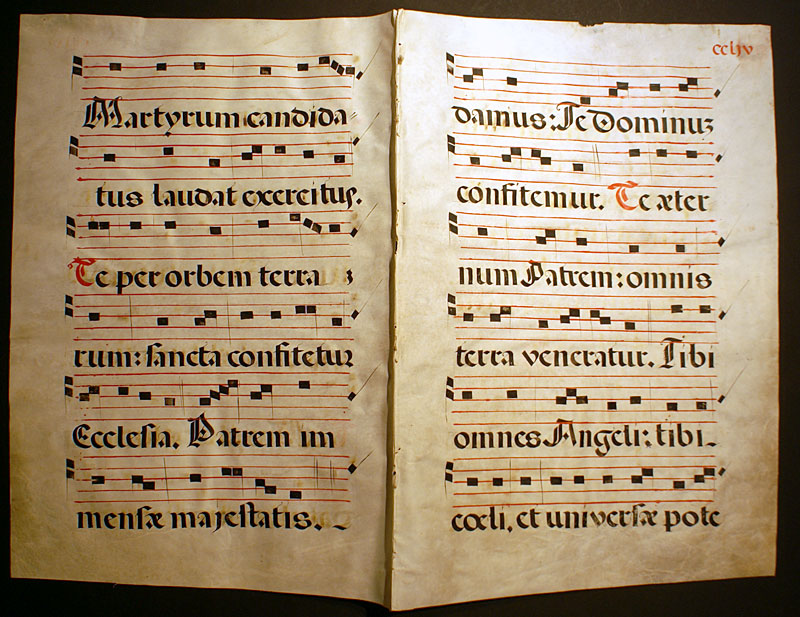 Martyrum candida-
tus laudat exercitus.
Te per orbem terra
rum: sancta confitetur
Ecclesia. Patrem im
mensæ majestatis. -
cclıv
damus: Te Dominum
confitemur. Te æter
num Patrem: omnis
terra veneratur. Tibi
omnes Angeli: tibi-
cœli, et universæ pote